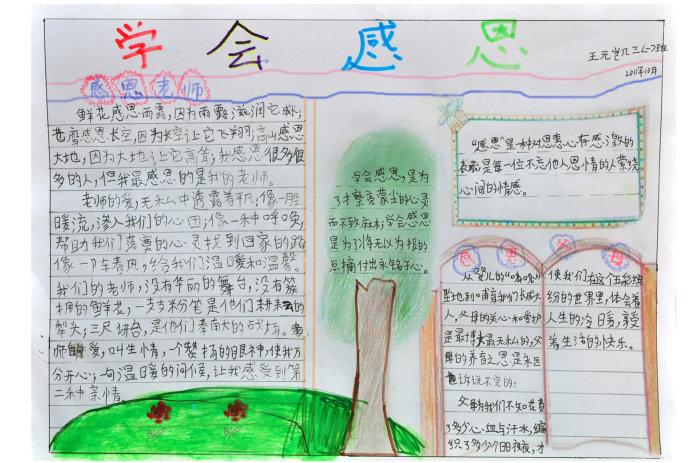 学会感恩
王元岂凡三(一)班
2011年10月
感恩老师
鲜花感恩雨露,因为雨露滋润它成长;
苍鹰感恩长空,因为长空让它飞翔;高山感恩
大地,因为大地让它高耸;我感恩很多很
多的人,但我最感恩的是我的老师。
老师的爱,无私中透露着平凡,像一股
暖流,渗入我们的心田;像一种呼唤,
帮助我们落寞的心灵找到回家的路
像一阵春风,给我们温暖和温馨。
我们的老师,没有华丽的舞台,没有簇
拥的鲜花,一支支粉笔是他们耕耘的
犁头;三尺讲台,是他们奉献的战场。老
师的爱,叫生情,一个赞扬的眼神,使我万
分开心;一句温暖的问候,让我感受到第
二种亲情。
学会感恩,是为
了擦亮蒙尘的心灵
而不致麻木;学会感恩
是为了将无以为报的
点滴付出永铭于心。
“感恩”是一种对恩惠心存感激的
表示是每一位不忘他人恩情的人萦绕
心间的情感。
感恩父母
从婴儿的“哇哇
坠地到哺育我们长大成
人,父母的关心和爱护
是最博大最无私的,父
母的养育之恩是永远
也诉说不完的:
父母为我们不知花费
了多少心血与汗水,编
织了多少个日日夜夜,才
使我们在这个五彩缤
纷的世界里,体会着
人生的冷暖,享受
着生活的快乐。